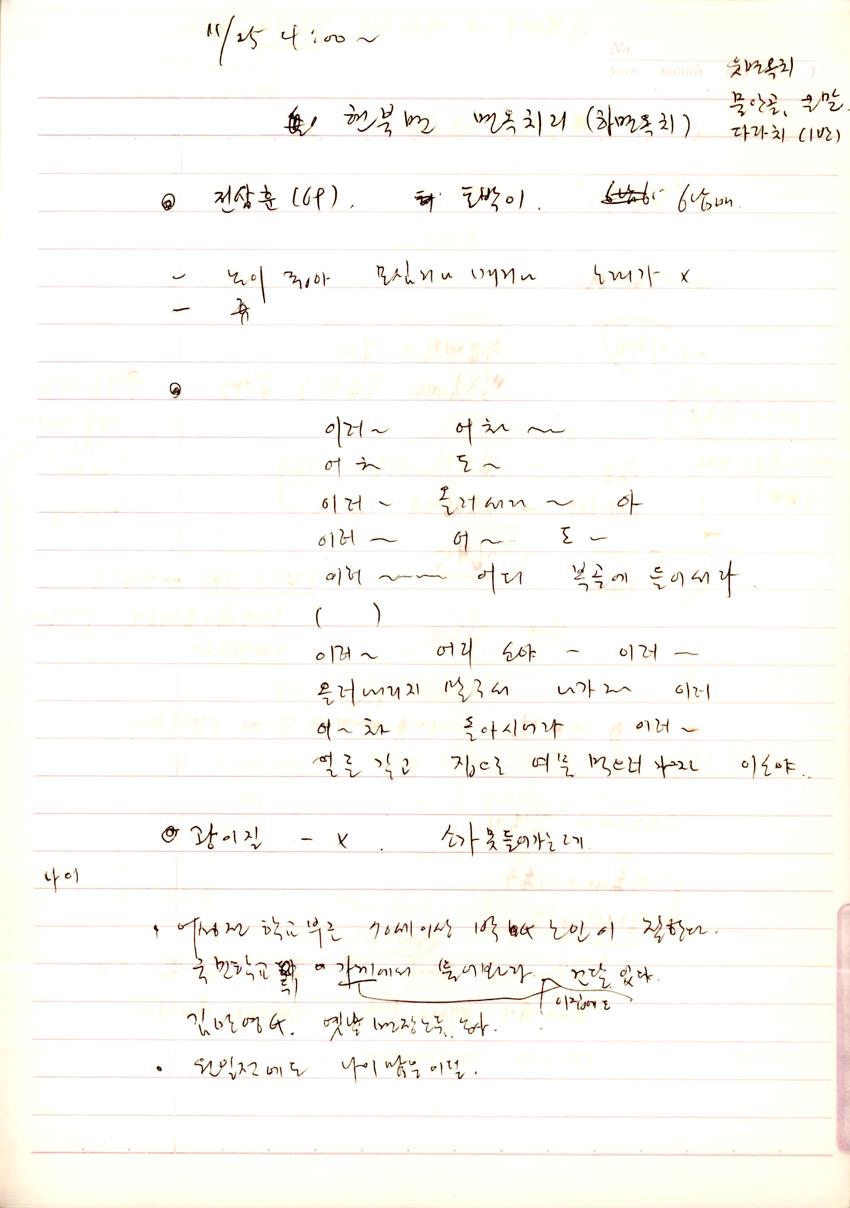 11/25 4:00~
No.
year month
웃면옥치
물안골, 온말
다라치 (1반)
현북면 면옥치리 (하면옥치)
전삼훈 (69). 토박이. 6남매.
- 논이 적어 모심기나 노래가 x
-
이러~ 어차~~
어차 도~
이러~ 올러서라~ 아
이러~ 어~ 도~
이러~~~ 어디 복골에 들어서라.
( )
이러~ 어리 소야 - 이러 -
올러내리지 말구서 나가자 이러
어~차 돌아서거라 이러~
얼른 갈고 집으로 여물 먹으러 가자 이소야..
광이질 - x. 소가 못들어가는데
나이
· 어성전 학교부근 70세이상 노인이 잘한다.
국민학교 에 가게에서 물어봐라. 건달 있다.
이집에도
김만영씨. 옛날 면장노릇.
· 원일전에도 나이많은이덜.